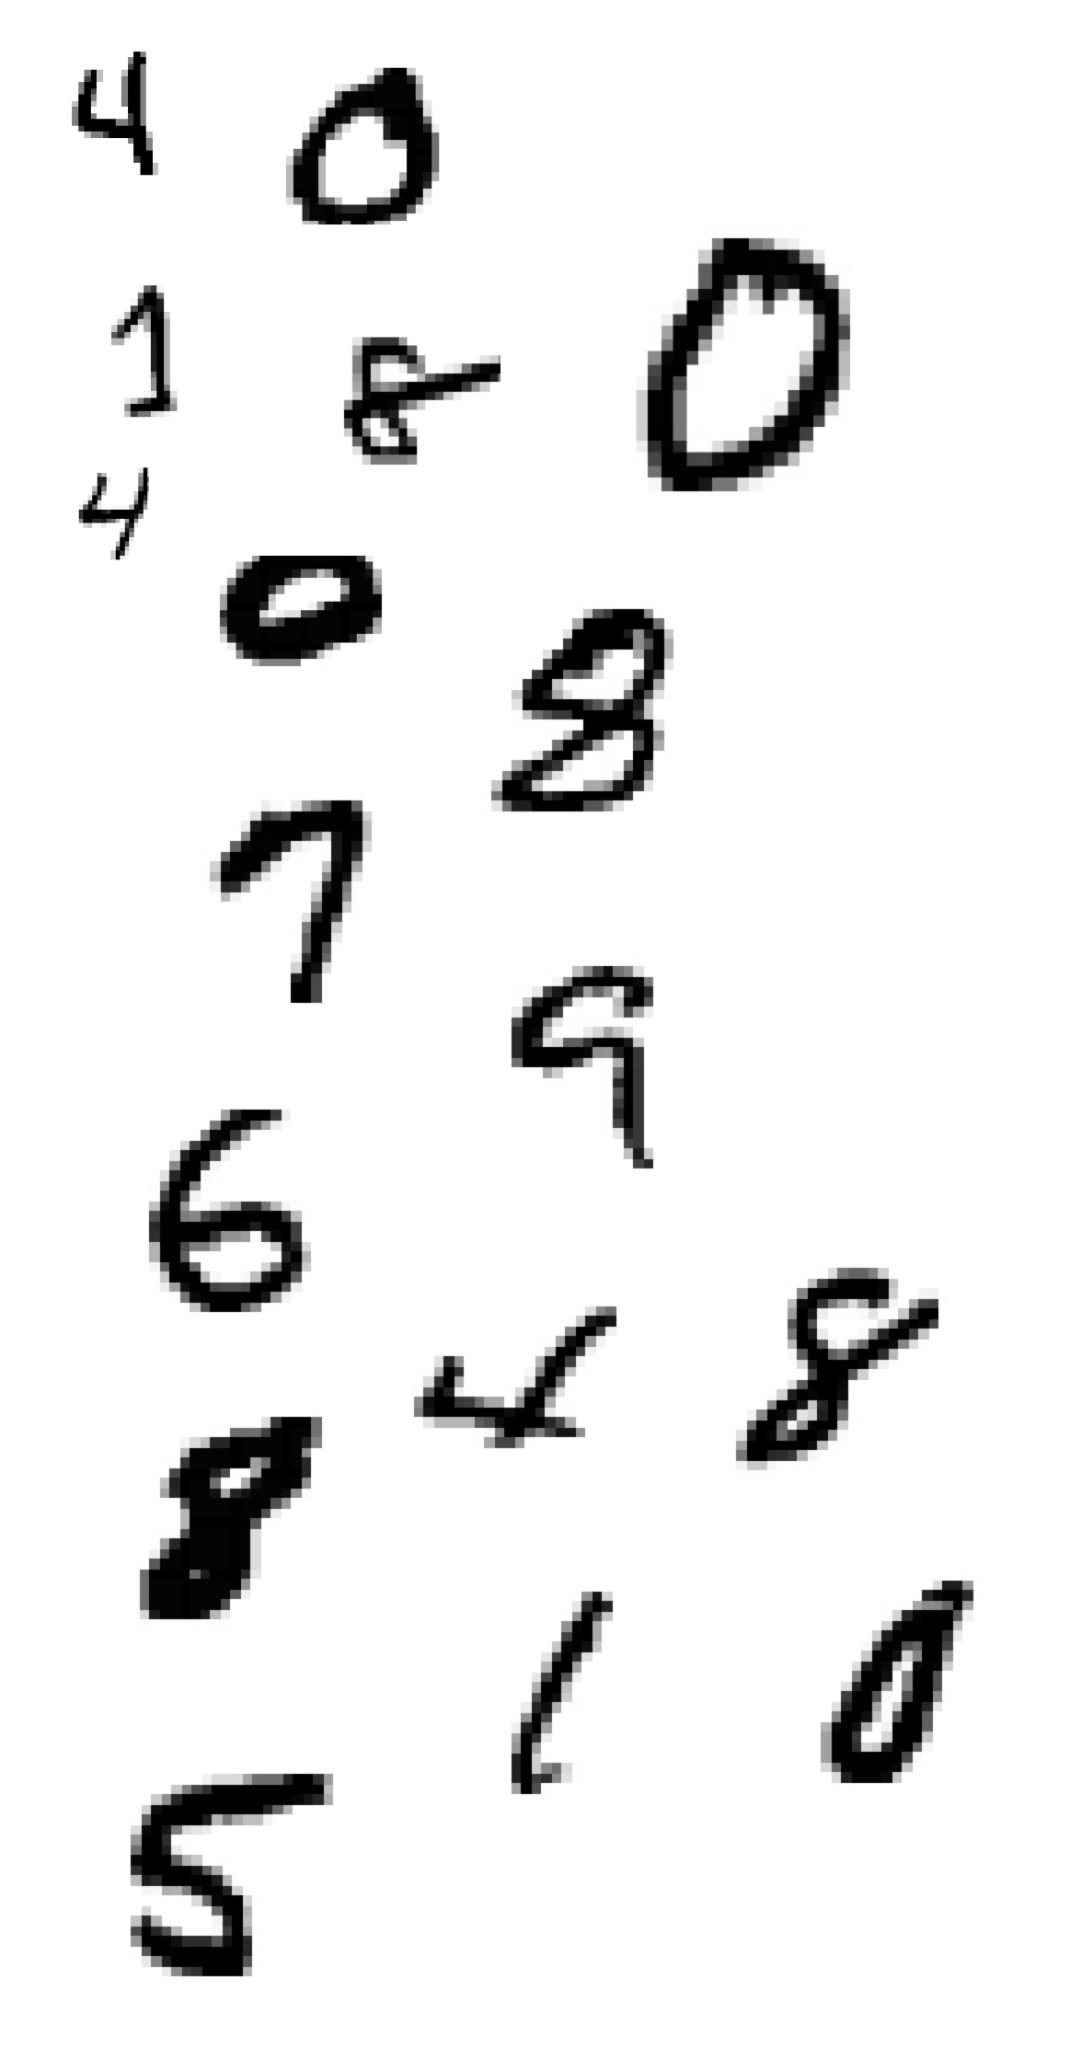 4 0
1 8 0
4
0 8
7
9
6
4 8
8
1 0
5